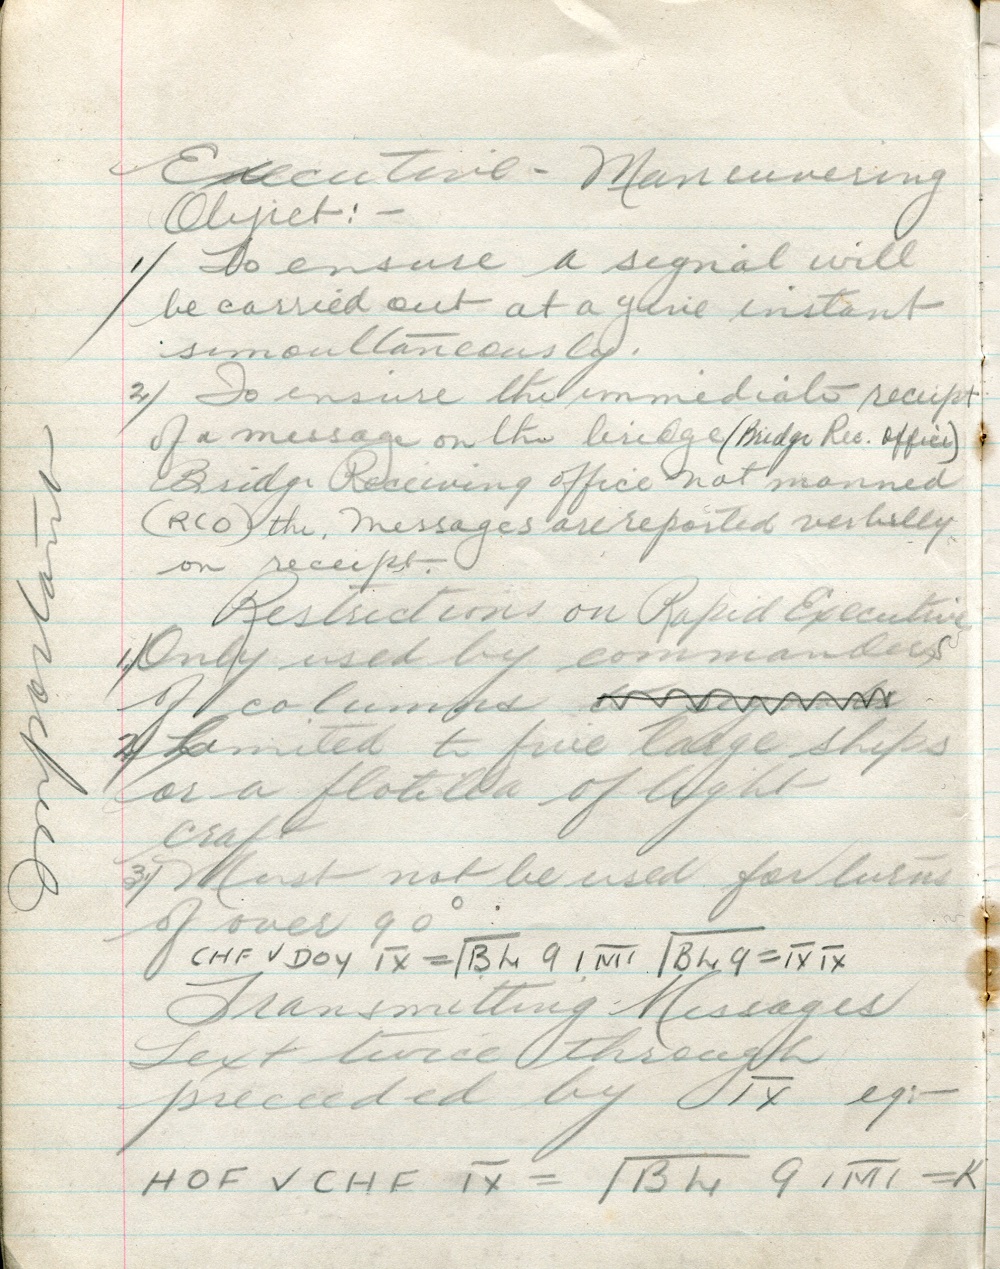 Executive - Maneuvering
Object:-
1/ To ensure a signal will
be carried out at a give instant
simoultaneously.
2/ To ensure the immediate receipt
of a message on the bridge (Bridge Rec. Office)
Bridge Receiving office not manned
(RCO) the, messages are reported verbally
on receipt.
Restrictions on Rapid Executive
1/ Only used by commanders
of columns
2/ Limited to five large ships
or a flotilla of light
craft
3/ Must not be used for turns
of over 90°.
CHF V DOY I̅X̅ = B̅L̅ 9 I̅M̅I̅ B̅L̅ 9 = I̅X̅ I̅X̅
Transmitting Messages
Text twice through
preceded by I̅X̅ eg:-
HOF V CHF I̅X̅ = B̅L̅ 9 I̅M̅I̅ = K
Important